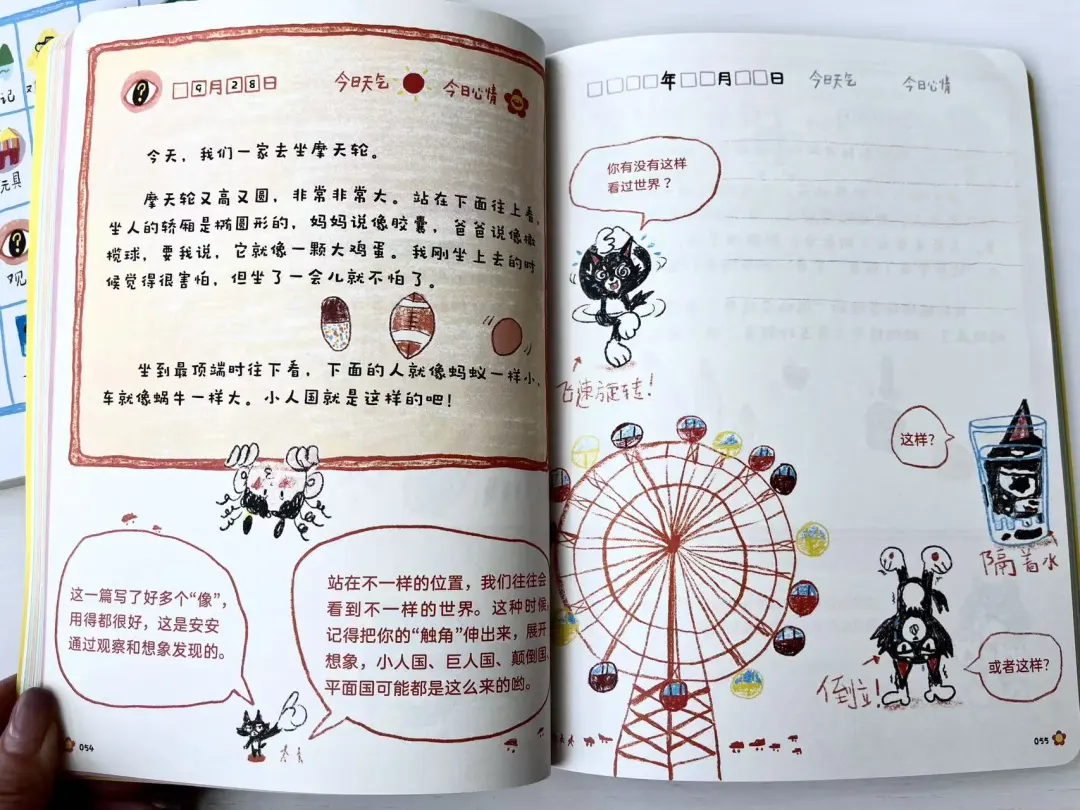 9月28日 今日天气 今日心情
今天，我们一家去坐摩天轮。
摩天轮又高又圆，非常非常大。站在下面往上看，
坐人的轿厢是椭圆形的，妈妈说像胶囊，爸爸说像橄
榄球，要我说，它就像一颗大鸡蛋。我刚坐上去的时
候觉得很害怕，但坐了一会儿就不怕了。
坐到最顶端时往下看，下面的人就像蚂蚁一样小，
车就像蜗牛一样大。小人国就是这样的吧！
这一篇写了好多个“像”，
用得都很好，这是安安
通过观察和想象发现的。
站在不一样的位置，我们往往会
看到不一样的世界。这种时候
记得把你的“触角”伸出来，展开
想象，小人国、巨人国、颠倒国、
平面国可能都是这么来的哟。
054
年 月 日 今日天气 今日心情
你有没有这样
看过世界？
飞速旋转！
这样？
隔着水
或者这样？
倒立！
055
记
玩具
观